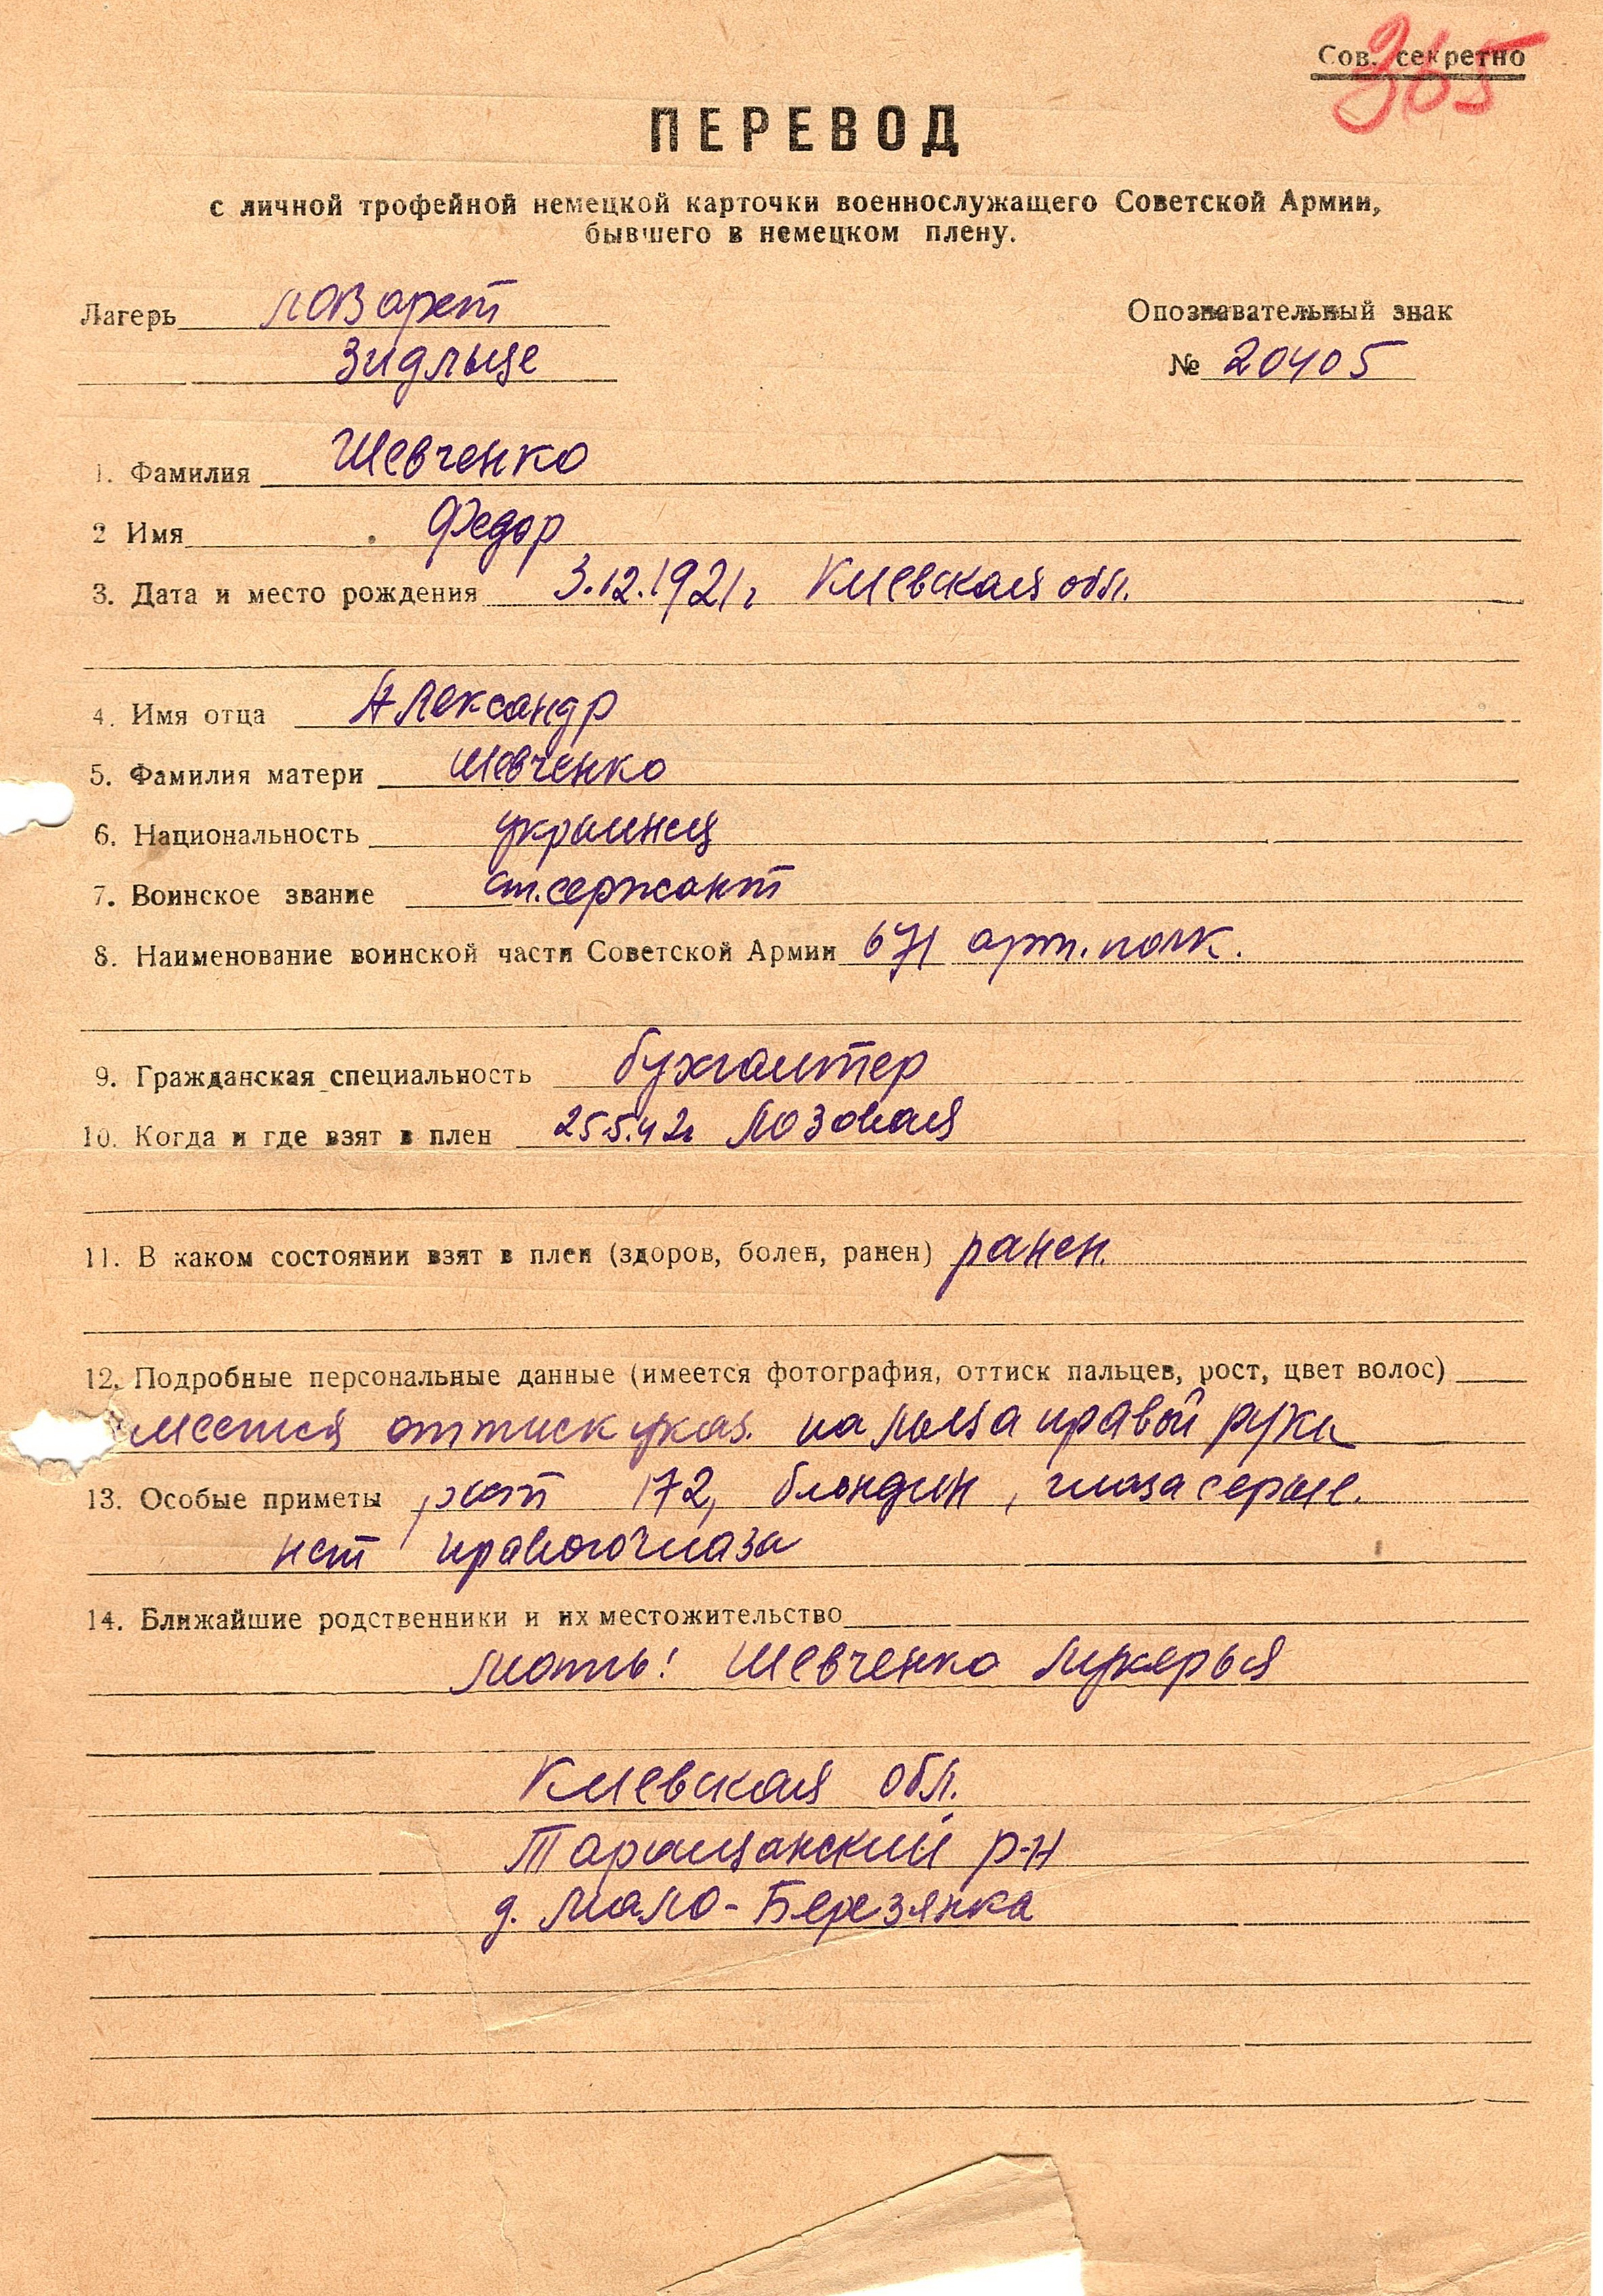 Сов. секретно
365
ПЕРЕВОД
с личной трофейной немецкой карточки военнослужащего Советской Армии,
бывшего в немецком плену.
Лагерь лазарет
Зидльце
Опознавательный знак
№ 20405
1. Фамилия Шевченко
2 Имя Федор
3. Дата и место рождения 3.12.1921г Киевская обл.
4. Имя отца Александр
5. Фамилия матери Шевченко
6. Национальность украинец
7. Воинское звание ст. сержант
8. Наименование воинской части Советской Армии 671 арт. полк.
9. Гражданская специальность бухгалтер
10. Когда и где взят в плен 25.5.42г Лозовая
11. В каком состоянии взят в плен (здоров, болен, ранен) ранен.
12. Подробные персональные данные (имеется фотография, оттиск пальцев, рост, цвет волос)
имеется оттиск указ. пальца правой руки
13. Особые приметы , рост 172, блондин, глаза серые.
нет правого глаза
14. Ближайшие родственники и их местожительство
мать: Шевченко Лукерья
Киевская обл.
Таращанский р-н
д. Мало-Березянка